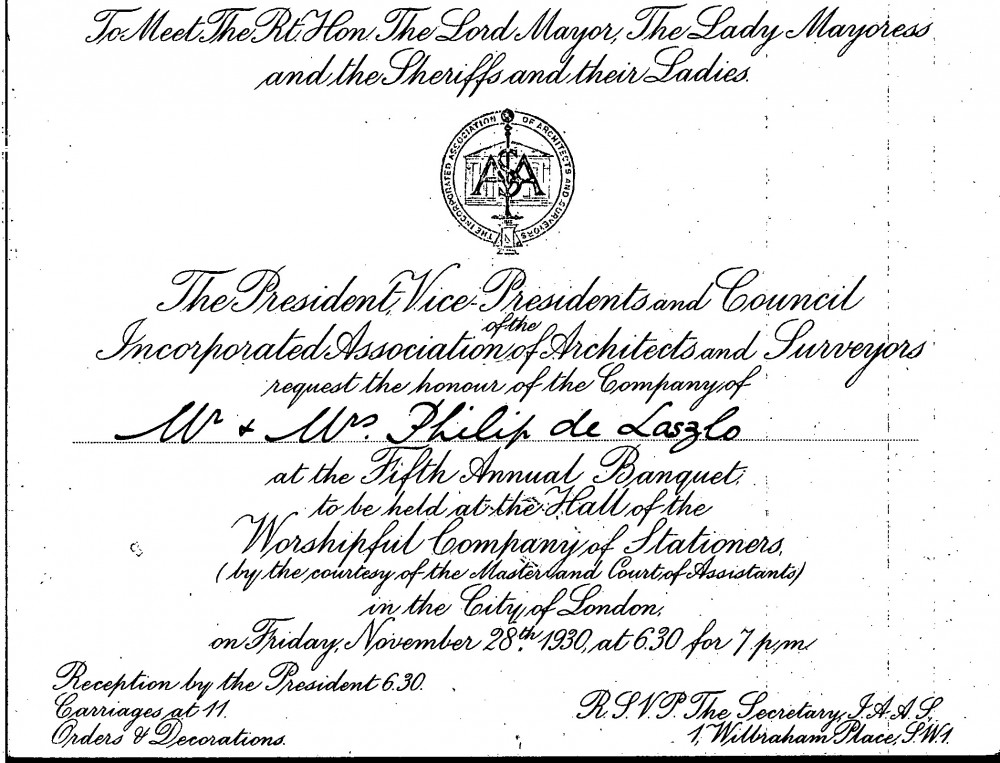 To Meet The Rt. Hon. The Lord Mayor, The Lady Mayoress
and the Sheriffs and their Ladies.
THE INCORPORATED ASSOCIATION OF ARCHITECTS AND SURVEYORS
IASA
The President, Vice-Presidents and Council
of the
Incorporated Association of Architects and Surveyors
request the honour of the Company of
Mr & Mrs. Philip de Laszlo
at the Fifth Annual Banquet,
to be held at the Hall of the
Worshipful Company of Stationers,
(by the courtesy of the Master and Court of Assistants)
in the City of London,
on Friday, November 28th. 1930, at 6.30 for 7 p.m.
Reception by the President 6.30.
Carriages at 11.
Orders & Decorations.
R.S.V.P. The Secretary, I.A.A.S.,
1, Wilbraham Place, S.W.1.